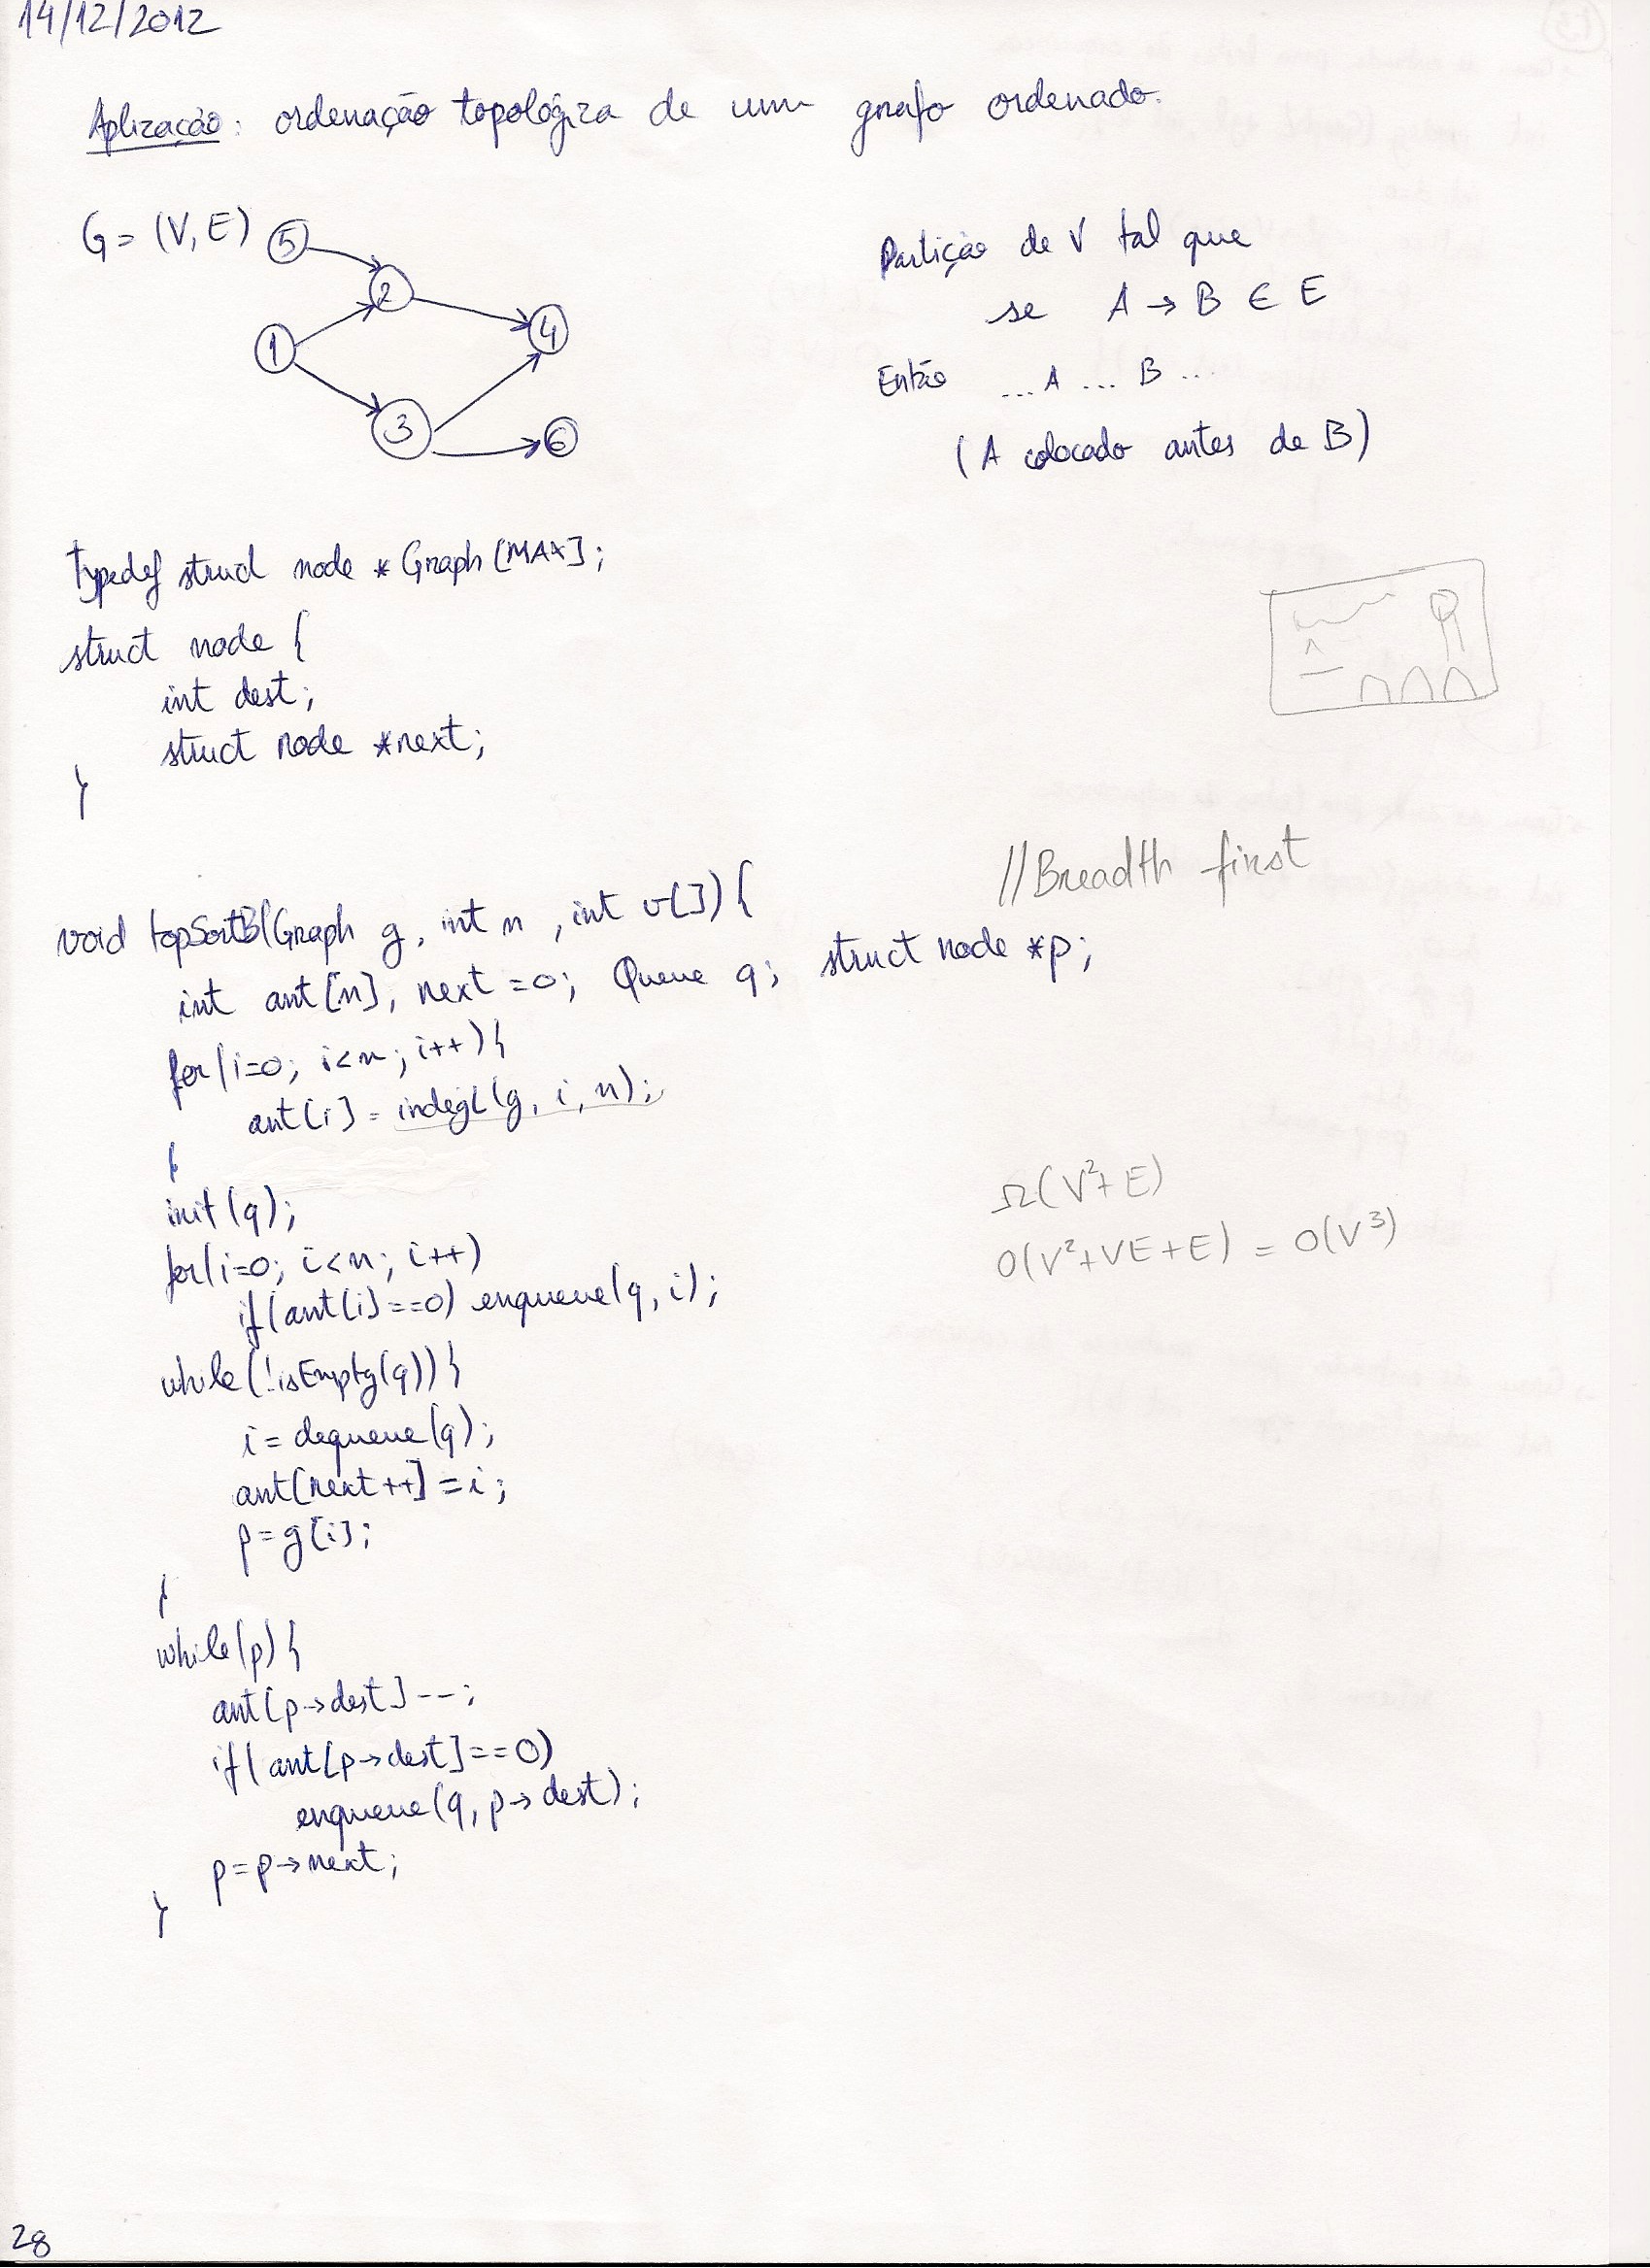 14/12/2012
Aplização: ordenação topológiza de um grafo ordenado.
G = (V, E)
5
2
1
4
3
6
Partição de V tal que
se A → B ∈ E
Então ... A ... B ...
(A colocado antes de B)
Typedef struct node *Graph[MAX];
struct node {
int dest;
struct node *next;
}
//Breadth first
void topSortBl(Graph g, int n, int v[]) {
int ant[n], next = 0; Queue q; struct node *p;
for(i=0; i<n; i++){
ant[i] = indegL(g, i, n);
}
init(q);
for(i=0; i<n; i++)
if(ant[i]==0) enqueue(q, i);
Ω(V²+E)
O(V²+VE+E) = O(V³)
while(!isEmpty(q)){
i = dequeue(q);
ant[next++] = i;
p = g[i];
}
while(p){
ant[p→dest]--;
if(ant[p→dest]==0)
enqueue(q, p→dest);
p = p→next;
}
28